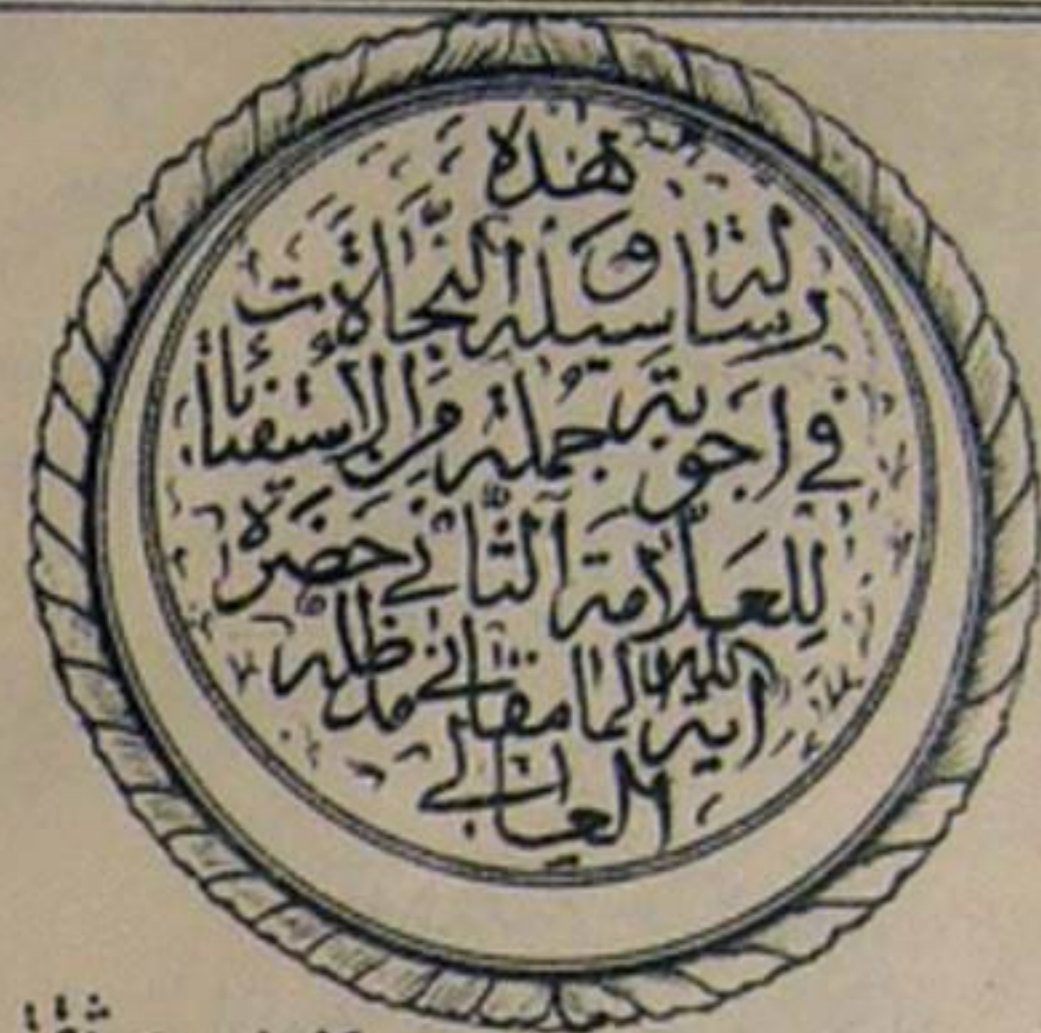 هذه
رسالة وسيلة النجاة
في اجوبة جملة من الاستفتاآت
للعلّامة الثّاني حضرة
اية الله المامقاني مد ظله
العالي